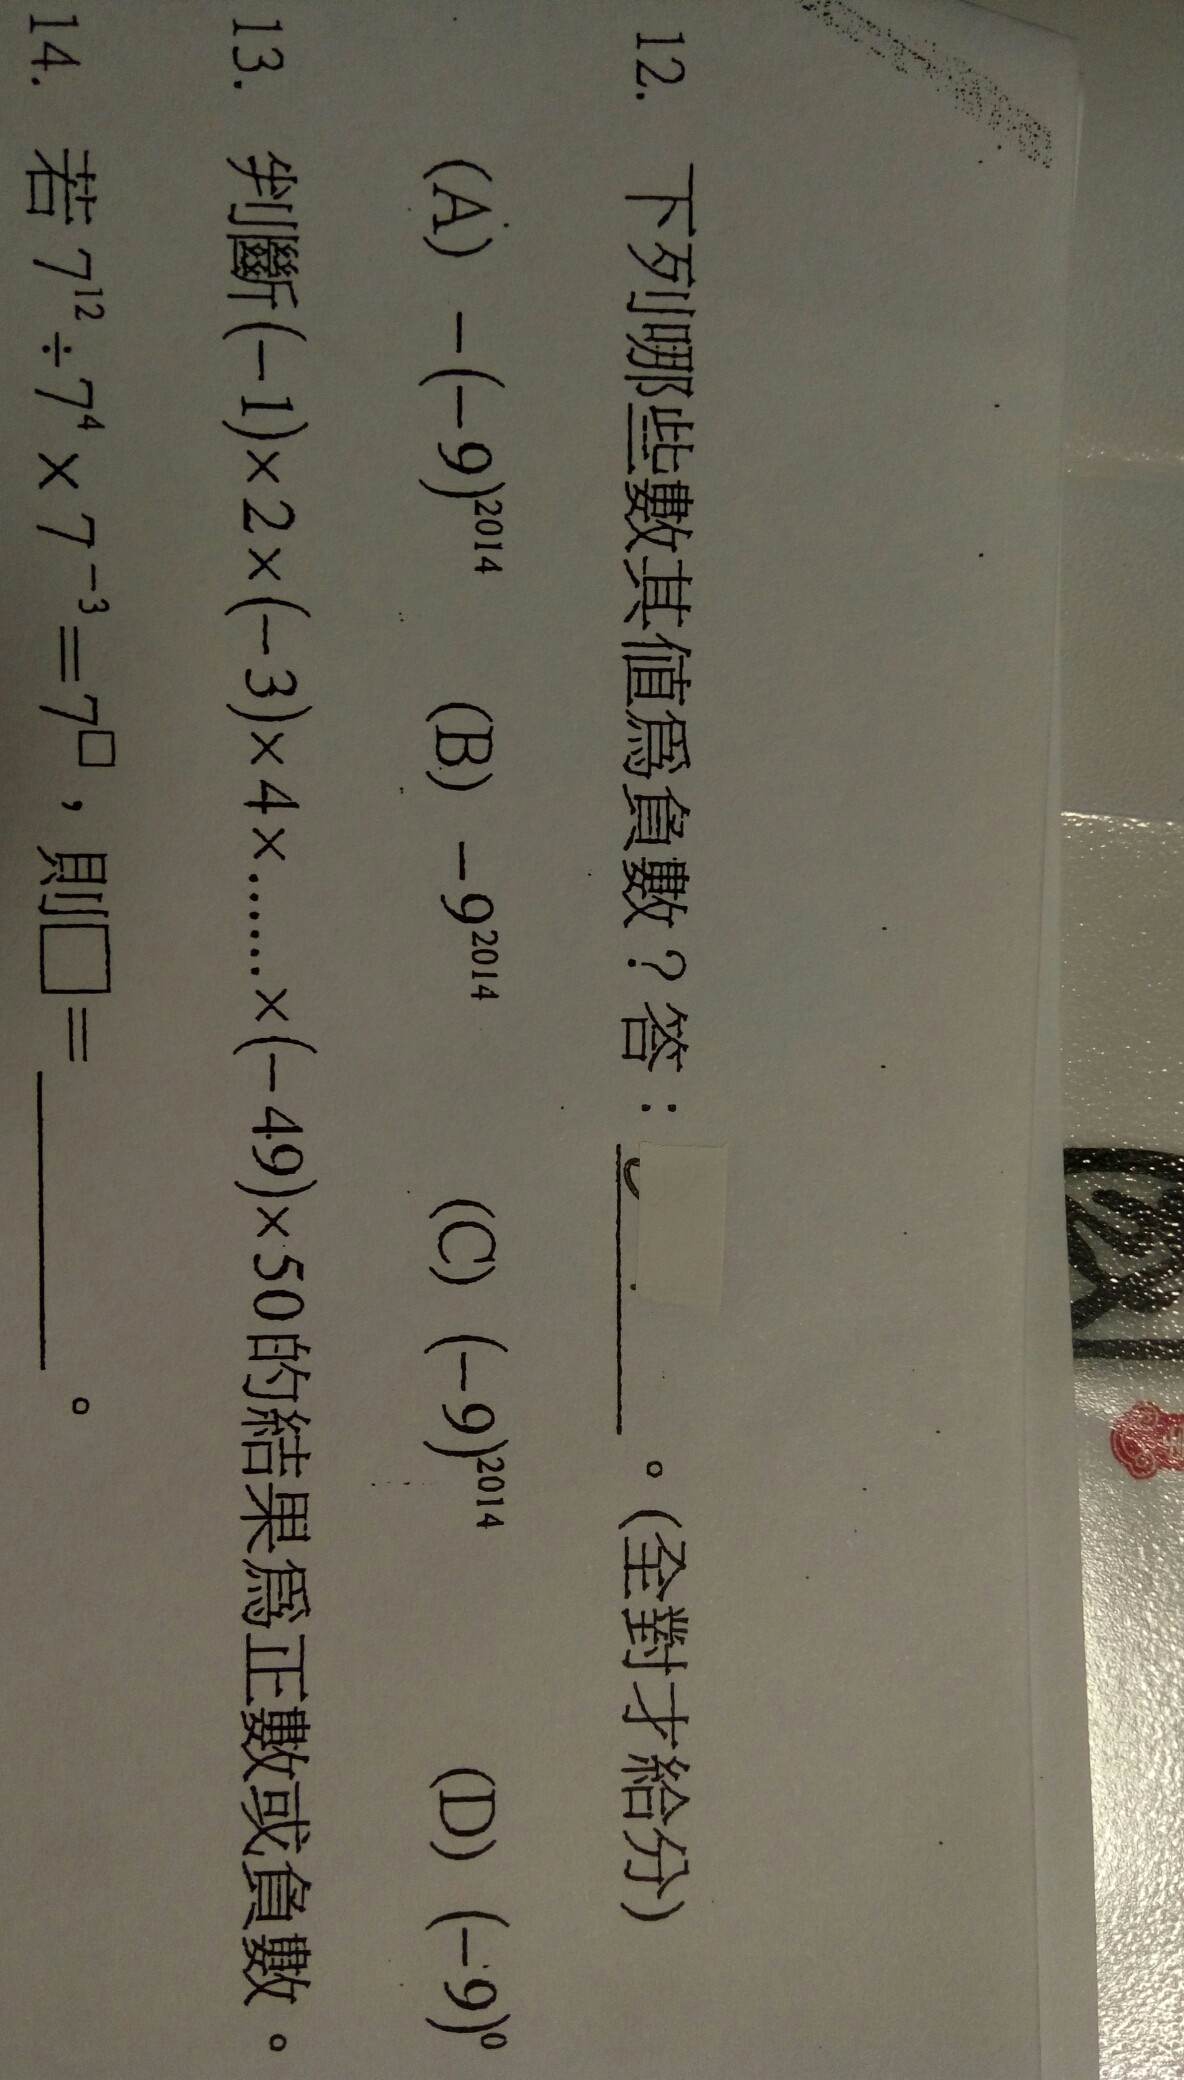 12. 下列哪些數其值為負數？答：＿＿＿＿。(全對才給分)
(A) －(－9)²⁰¹⁴ (B) －9²⁰¹⁴ (C) (－9)²⁰¹⁴ (D) (－9)⁰
13. 判斷(－1)×2×(－3)×4×……×(－49)×50的結果為正數或負數。
14. 若 7¹²÷7⁴×7⁻³＝7□，則□＝＿＿＿＿。